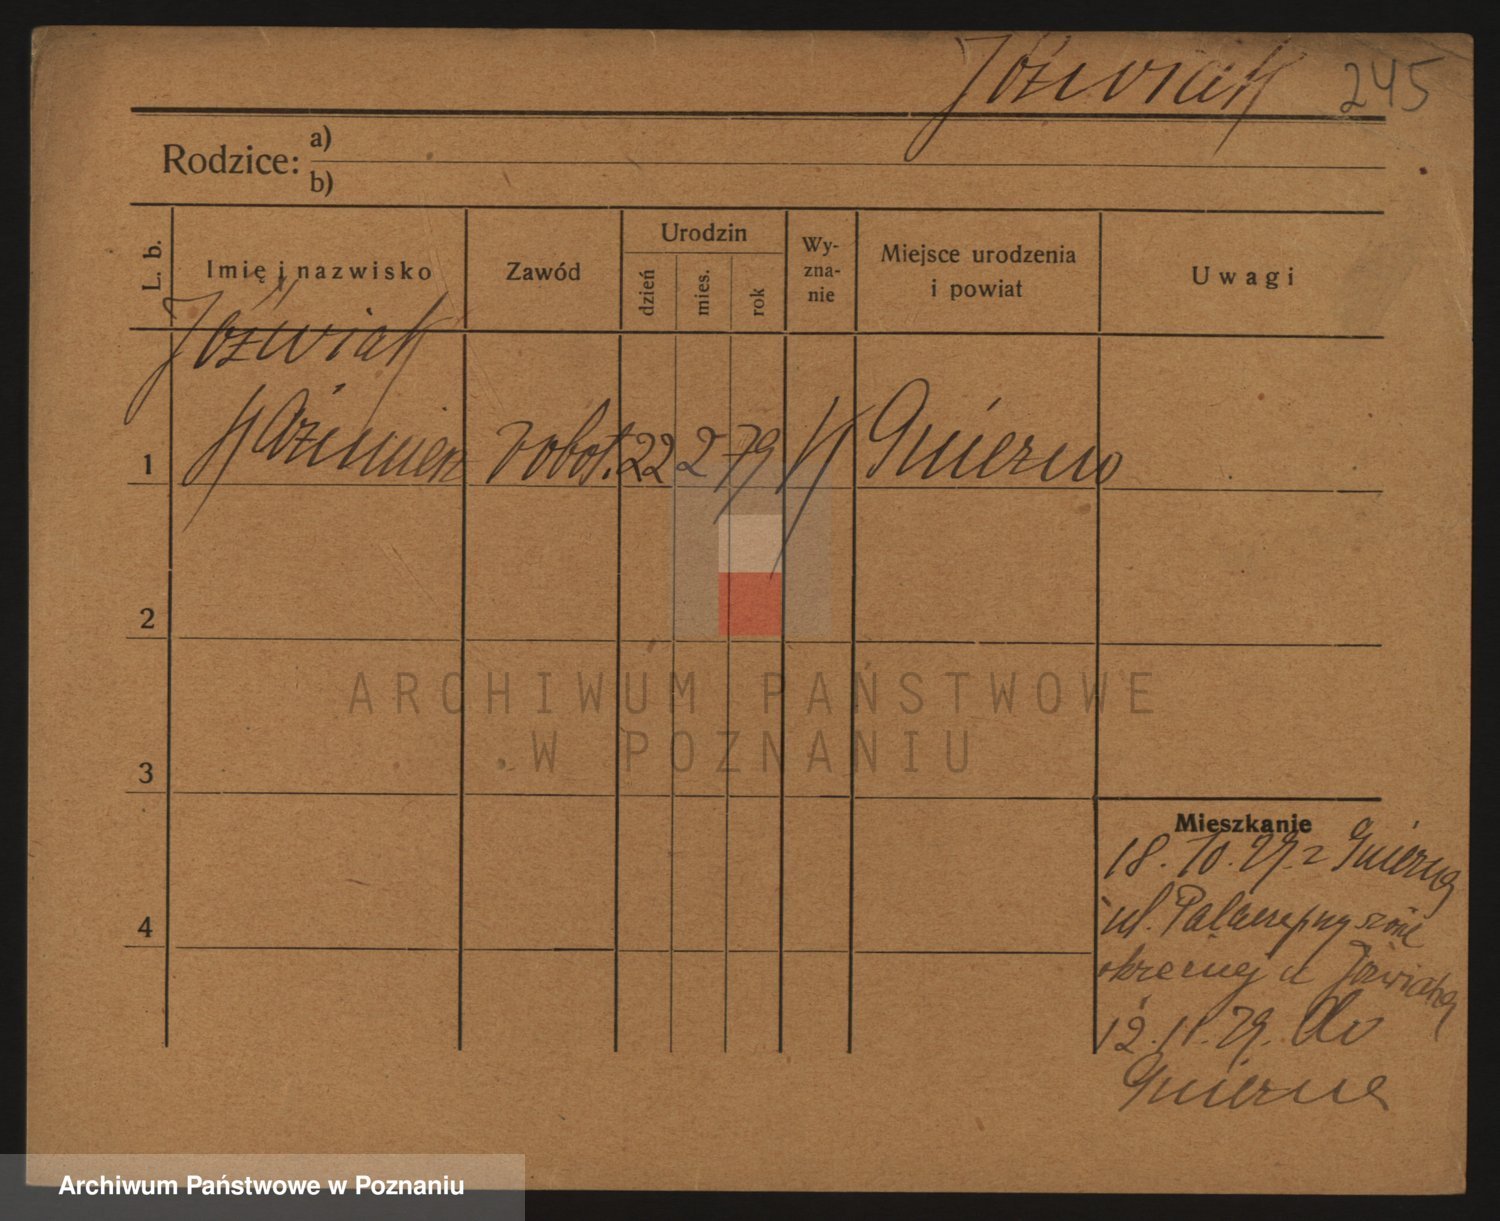 Jóźwiak 245
Rodzice: a)
b)
L. b. Imię i nazwisko Zawód Urodzin Wy-zna-nie Miejsce urodzenia i powiat Uwagi
dzień mies. rok
Jóźwiak
1 Kaźimierz robot. 22 2 79 K Gnieżno
2
ARCHIWUM PAŃSTWOWE
W POZNANIU
3
Mieszkanie
18. 10. 29. z Gniezna
4
ul.
u Jóźwiaka
12. 11. 29. do
Gniezna
Archiwum Państwowe w Poznaniu